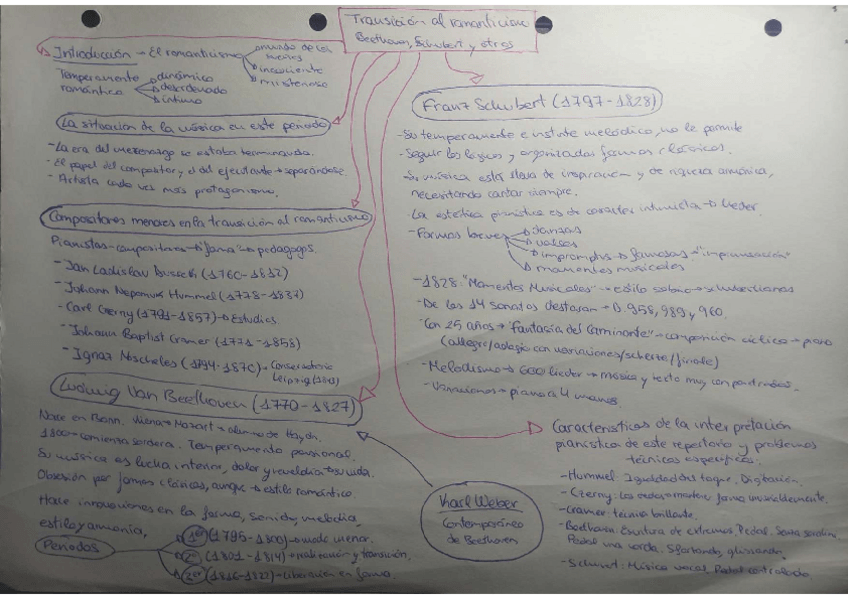 Transición al romanticismo
Beethoven, Schubert y otros
Introducción → El romanticismo
mundo de los sueños
inconsciente
misterioso
Temperamento romántico
dinámico
desordenado
íntimo
La situación de la música en este periodo
- La era del mecenazgo se estaba terminando.
- El papel del compositor y el del ejecutante → separándose.
- Artista cada vez más protagonismo.
Compositores menores en la transición al romanticismo
Pianistas-compositores → fama → pedagogos.
- Jan Ladislav Dussek (1760-1812)
- Johann Nepomuk Hummel (1778-1837)
- Carl Czerny (1791-1857) → Estudios
- Johann Baptist Cramer (1771-1858)
- Ignaz Moscheles (1794-1870) → Conservatorio
Leipzig (1843)
Ludwig Van Beethoven (1770-1827)
Nace en Bonn. Viena → Mozart → alumno de Haydn.
1800 → comienza sordera. Temperamento pasional.
Su música es lucha interior, dolor y rebeldía → su vida.
Obsesión por formas clásicas, aunque → estilo romántico.
Hace innovaciones en la forma, sonido, melodía,
estilo y armonía.
Periodos
(1795-1800) →
(1801-1814) → realización y transición.
(1816-1822) → liberación en forma.
Karl Weber
Contemporáneo
de Beethoven
Franz Schubert (1797-1828)
- Su temperamento e instinto melódico, no le permite
- Seguir las lógicas y organizadas formas clásicas.
- Su música está llena de inspiración y de riqueza armónica,
necesitando cantar siempre.
- La estética pianística es de carácter intimista → Lieder.
- Formas breves
danzas
valses
impromptus → famosos → "improvisación"
momentos musicales
- 1828: "Momentos Musicales" → estilo sobrio → schubertianos
- De las 14 sonatas destacan → D. 958, 989 y 960.
- Con 25 años → "fantasía del caminante" → composición cíclica → piano
(allegro/adagio con variaciones/scherzo/finale)
- Melodismo → 600 lieder → música y texto muy compenetrados.
- Variaciones → piano a 4 manos.
Características de la interpretación
pianística de este repertorio y problemas
técnicos específicos.
- Hummel: Igualdad del toque. Digitación.
- Czerny:
- Cramer: técnica brillante.
- Beethoven: Escritura de extremos. Pedal.
Pedal una corda. Sforzando, glissando.
- Schubert: Música vocal. Pedal controlado